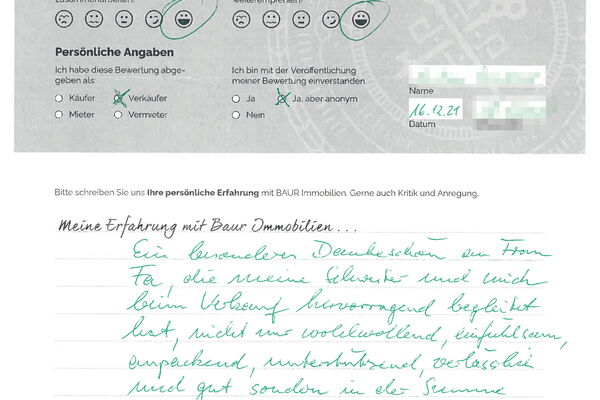 zusammenarbeiten? weiterempfehlen?
Persönliche Angaben
Ich habe diese Bewertung abge-
geben als:
Käufer
Verkäufer
Mieter
Vermieter
Ich bin mit der Veröffentlichung
meiner Bewertung einverstanden.
Ja
Ja, aber anonym
Nein
Name
16.12.21
Datum
Bitte schreiben Sie uns Ihre persönliche Erfahrung mit BAUR Immobilien. Gerne auch Kritik und Anregung.
Meine Erfahrung mit Baur Immobilien...
Ein besonderes Dankeschön an Frau
die meine Schwester und mich
beim Verkauf hervorragend begleitet
hat, nicht nur wohlwollend, einfühlsam,
anpackend, unterstützend, verlässlich
und gut sondern in der Summe